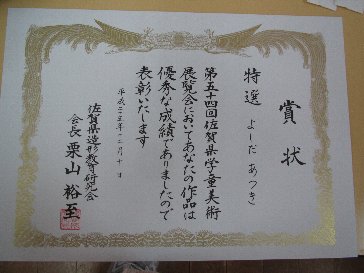 賞状
特選 よしだ あつき
第五十四回佐賀県学童美術
展覧会においてあなたの作品は
優秀な成績でありましたので
表彰いたします
平成二十三年十二月十一日
佐賀県造形教育研究会
会長 栗山裕至